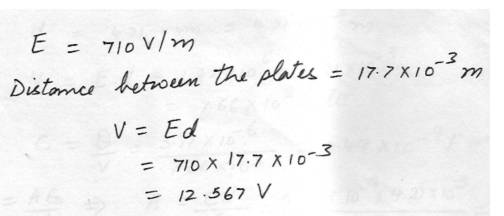 E = 710 V/m
Distance between the plates = 17.7 X 10⁻³ m
V = Ed
= 710 X 17.7 X 10⁻³
= 12.567 V